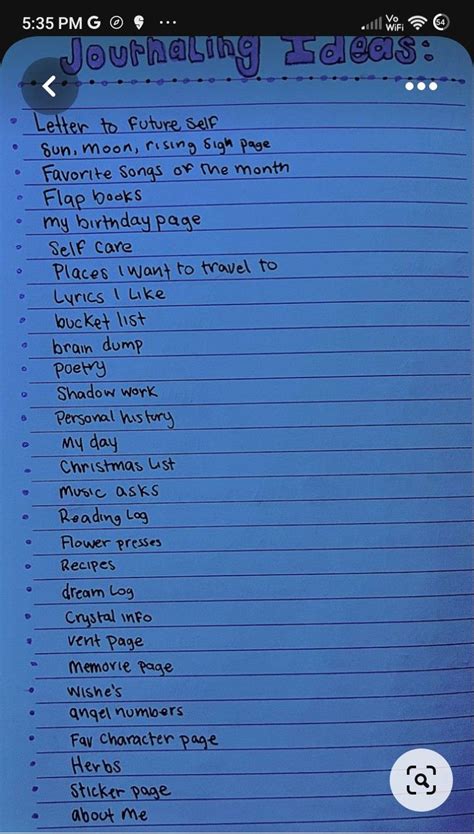 5:35 PM G
Vo
WiFi
54
Journaling Ideas:
Letter to Future Self
Sun, moon, rising sigh page
Favorite Songs of The month
Flap books
my birthday page
Self care
Places I want to travel to
Lyrics I Like
bucket list
brain dump
Poetry
Shadow work
Personal history
My day
Christmas List
Music asks
Reading Log
Flower presses
Recipes
dream Log
Crystal info
vent page
memorie page
Wishe's
angel numbers
Fav Character page
Herbs
Sticker page
about Me